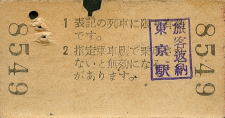 8549
1 表記の列車に限り有
です。
2 指定乗車駅で乗
ないと無効にな
があります。
旅客返納
東京駅
8549